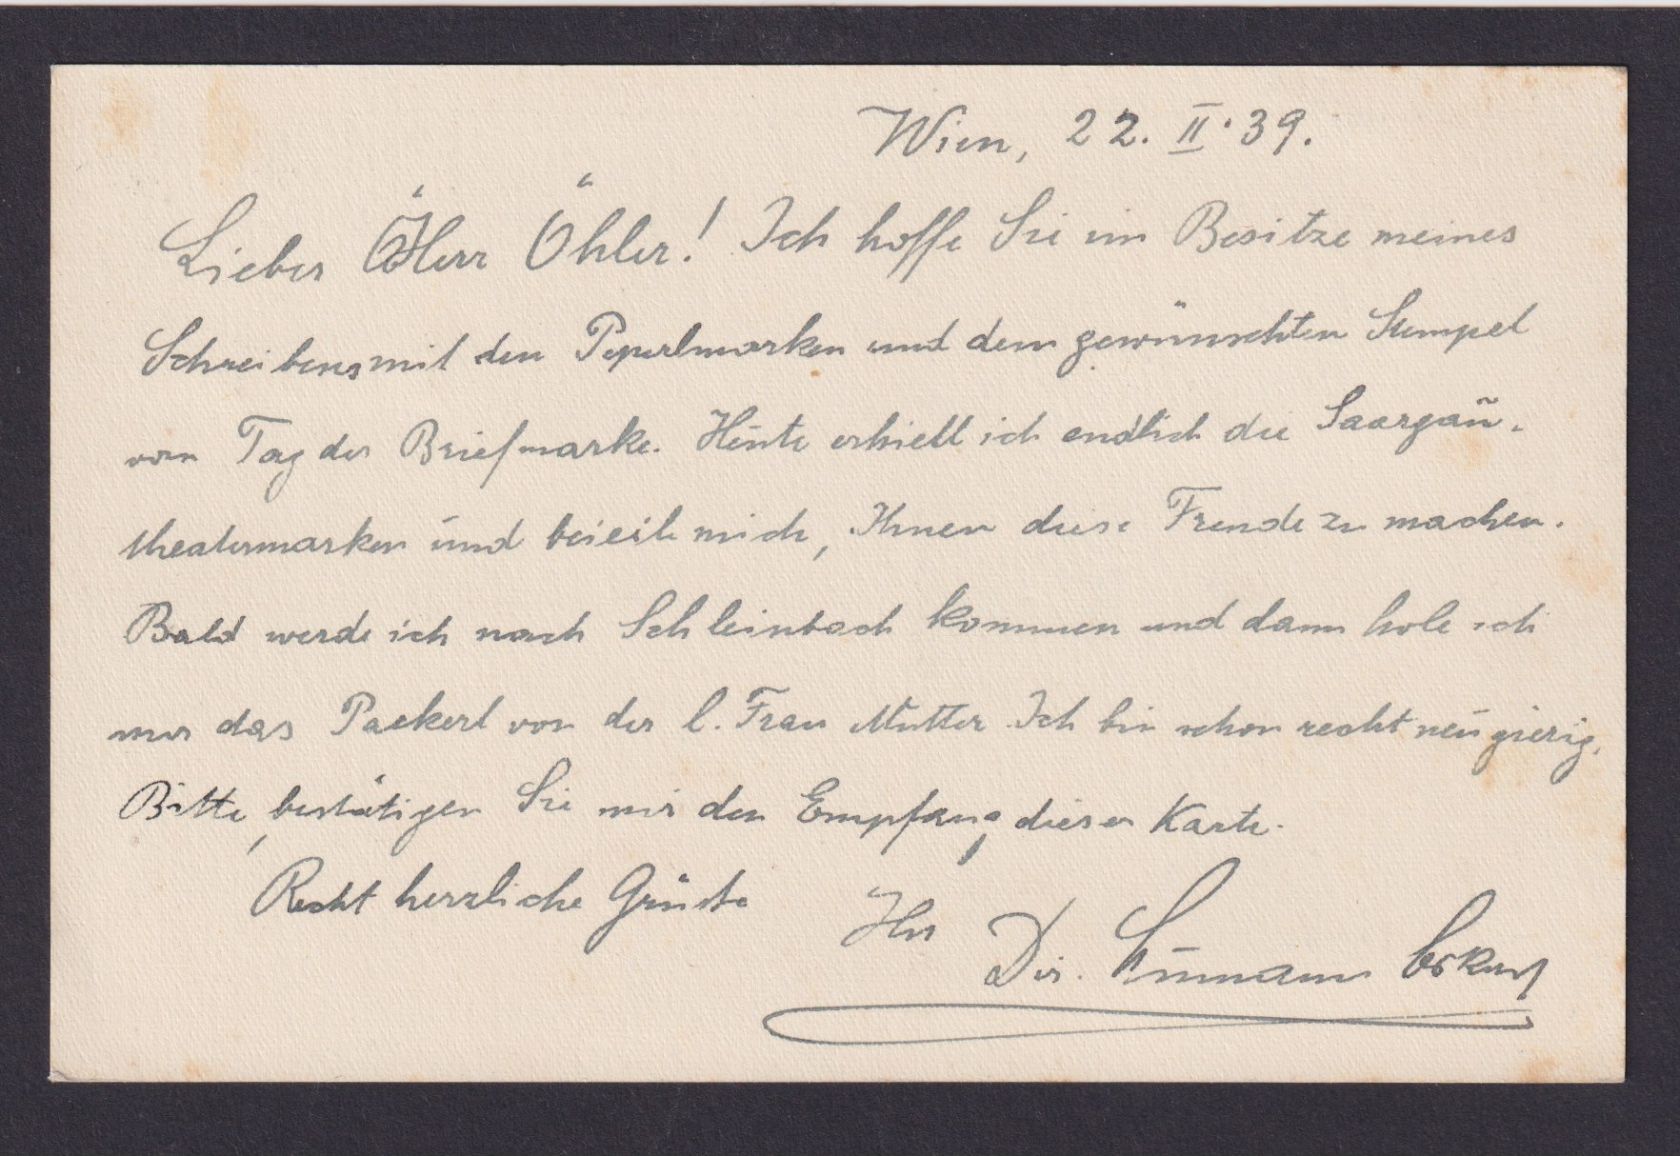 Wien, 22. II. 39.
Lieber Herr Öhler! Ich hoffe Sie im Besitze meines
Schreibens mit den Peperlmarken und dem gewünschten Stempel
vom Tag der Briefmarke. Heute erhielt ich endlich die Saargau-
theatermarken und beieile mich, Ihnen diese Freude zu machen.
Bald werde ich nach Schleinbach kommen und dann hole ich
mir das Packerl von der l. Frau Mutter. Ich bin schon recht neugierig.
Bitte, bestätigen Sie mir den Empfang dieser Karte.
Recht herzliche Grüße
Ihr Dir.